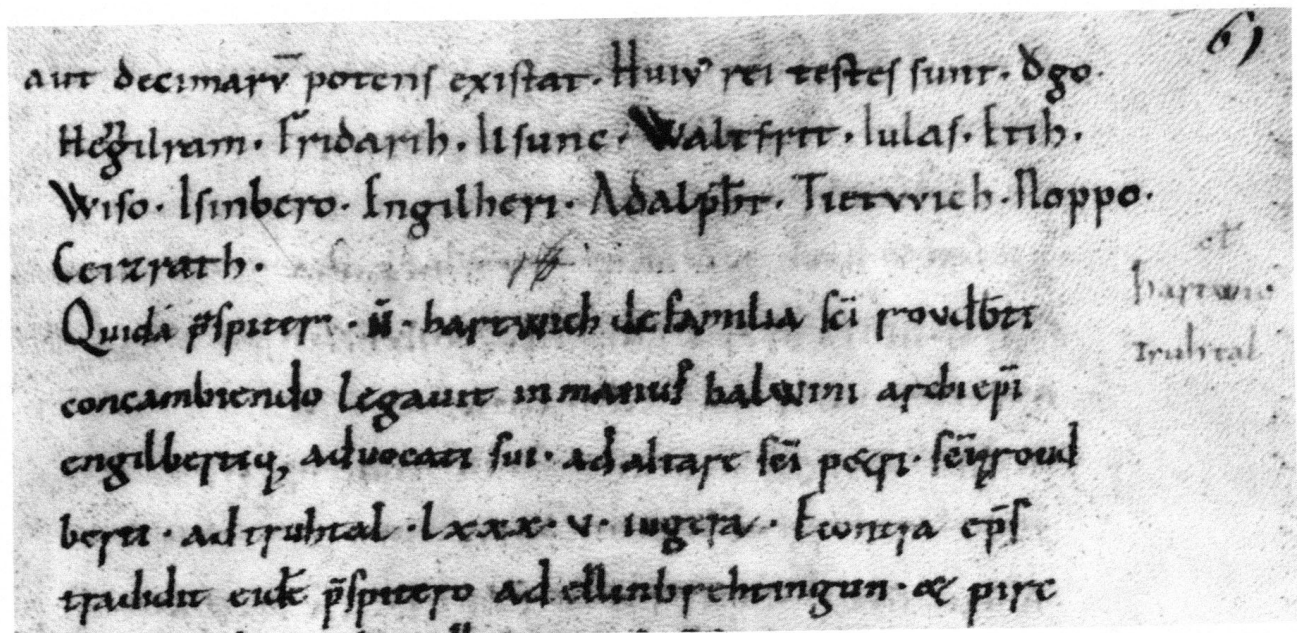 61
aut decimarū potens existat. Huiꝰ rei testes sunt. Ogo.
Hegilram. Fridarih. Lisunc. Waltfrit. Iulas. Etih.
Wiso. Isinbero. Engilheri. Adalp̄ht. Tietwich. Noppo.
Ceizrath.
Quidā p̄sbiter. ń. hartwich de familia sc̄i roudb̄ti
concambiendo legauit in manus balwini archiep̄i
engilbertiq; aduocati sui. ad altare sc̄i petri. sc̄iq; roud
berti. ad truhtal. lxxx. v. iugera. Econtra ep̄s
tradidit eidē p̄sbitero ad ellinbrehtingun. & pirc
et
hartwic
truhtal